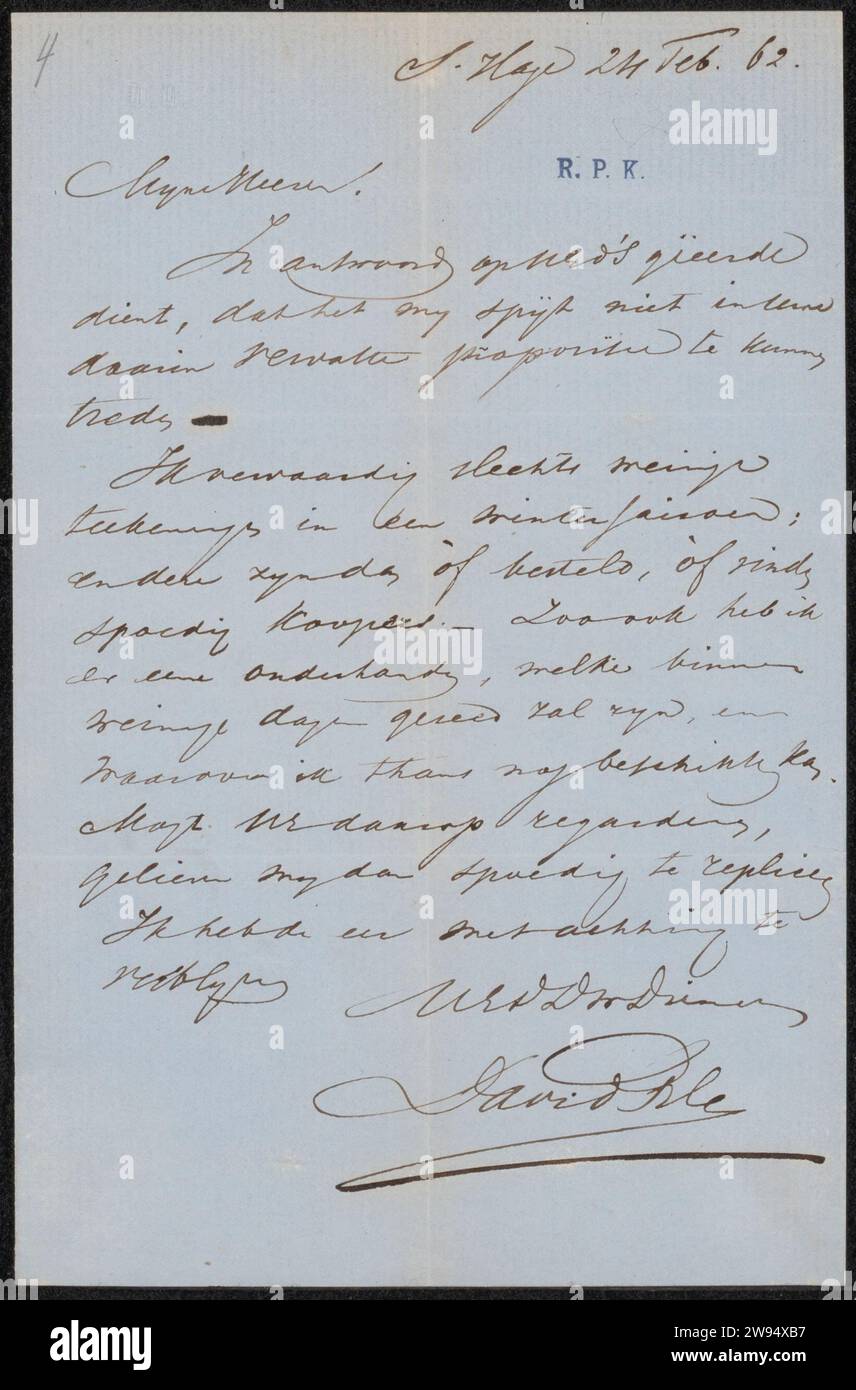 4
S. Hage 24 Feb. 62.
R. P. K.
Myne Heeren!
In antwoord op UEd's geëerde
dient, dat het my spyt niet in
daarin vervatte propositie te kunnen
treden
Ik vervaardig slechts weinige
teekeningen in een winter saisoen;
en deze zyn dan òf besteld, òf vinden
spoedig koopers. — Zoo ook heb ik
er eene onderhanden, welke binnen
weinige dagen gereed zal zyn, en
waarover ik thans nog beschikken kan.
Mogt UE daarop regarderen,
gelieve my dan spoedig te repliceren
Ik heb de eer met achting te
verblyven
UEd DW Dienaar
David Bles
a
alamy
Image ID: 2W94XB7
www.alamy.com